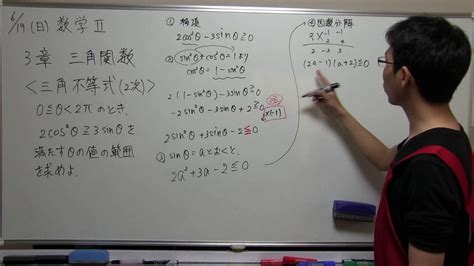 6/19(日)数学Ⅱ
3章 三角関数
<三角不等式(2次)>
0≦θ<2πのとき、
2cos²θ≧3sinθを
満たすθの値の範囲
を求めよ。
①移項
2cos²θ-3sinθ≧0
② sin²θ+cos²θ=1より
cos²θ=1-sin²θ
2(1-sin²θ)-3sinθ≧0
-2sin²θ-3sinθ+2≧0
×(-1)
2sin²θ+3sinθ-2≦0
③ sinθ=aとおくと、
2a²+3a-2≦0
④因数分解
(2a-1)(a+2)≦0